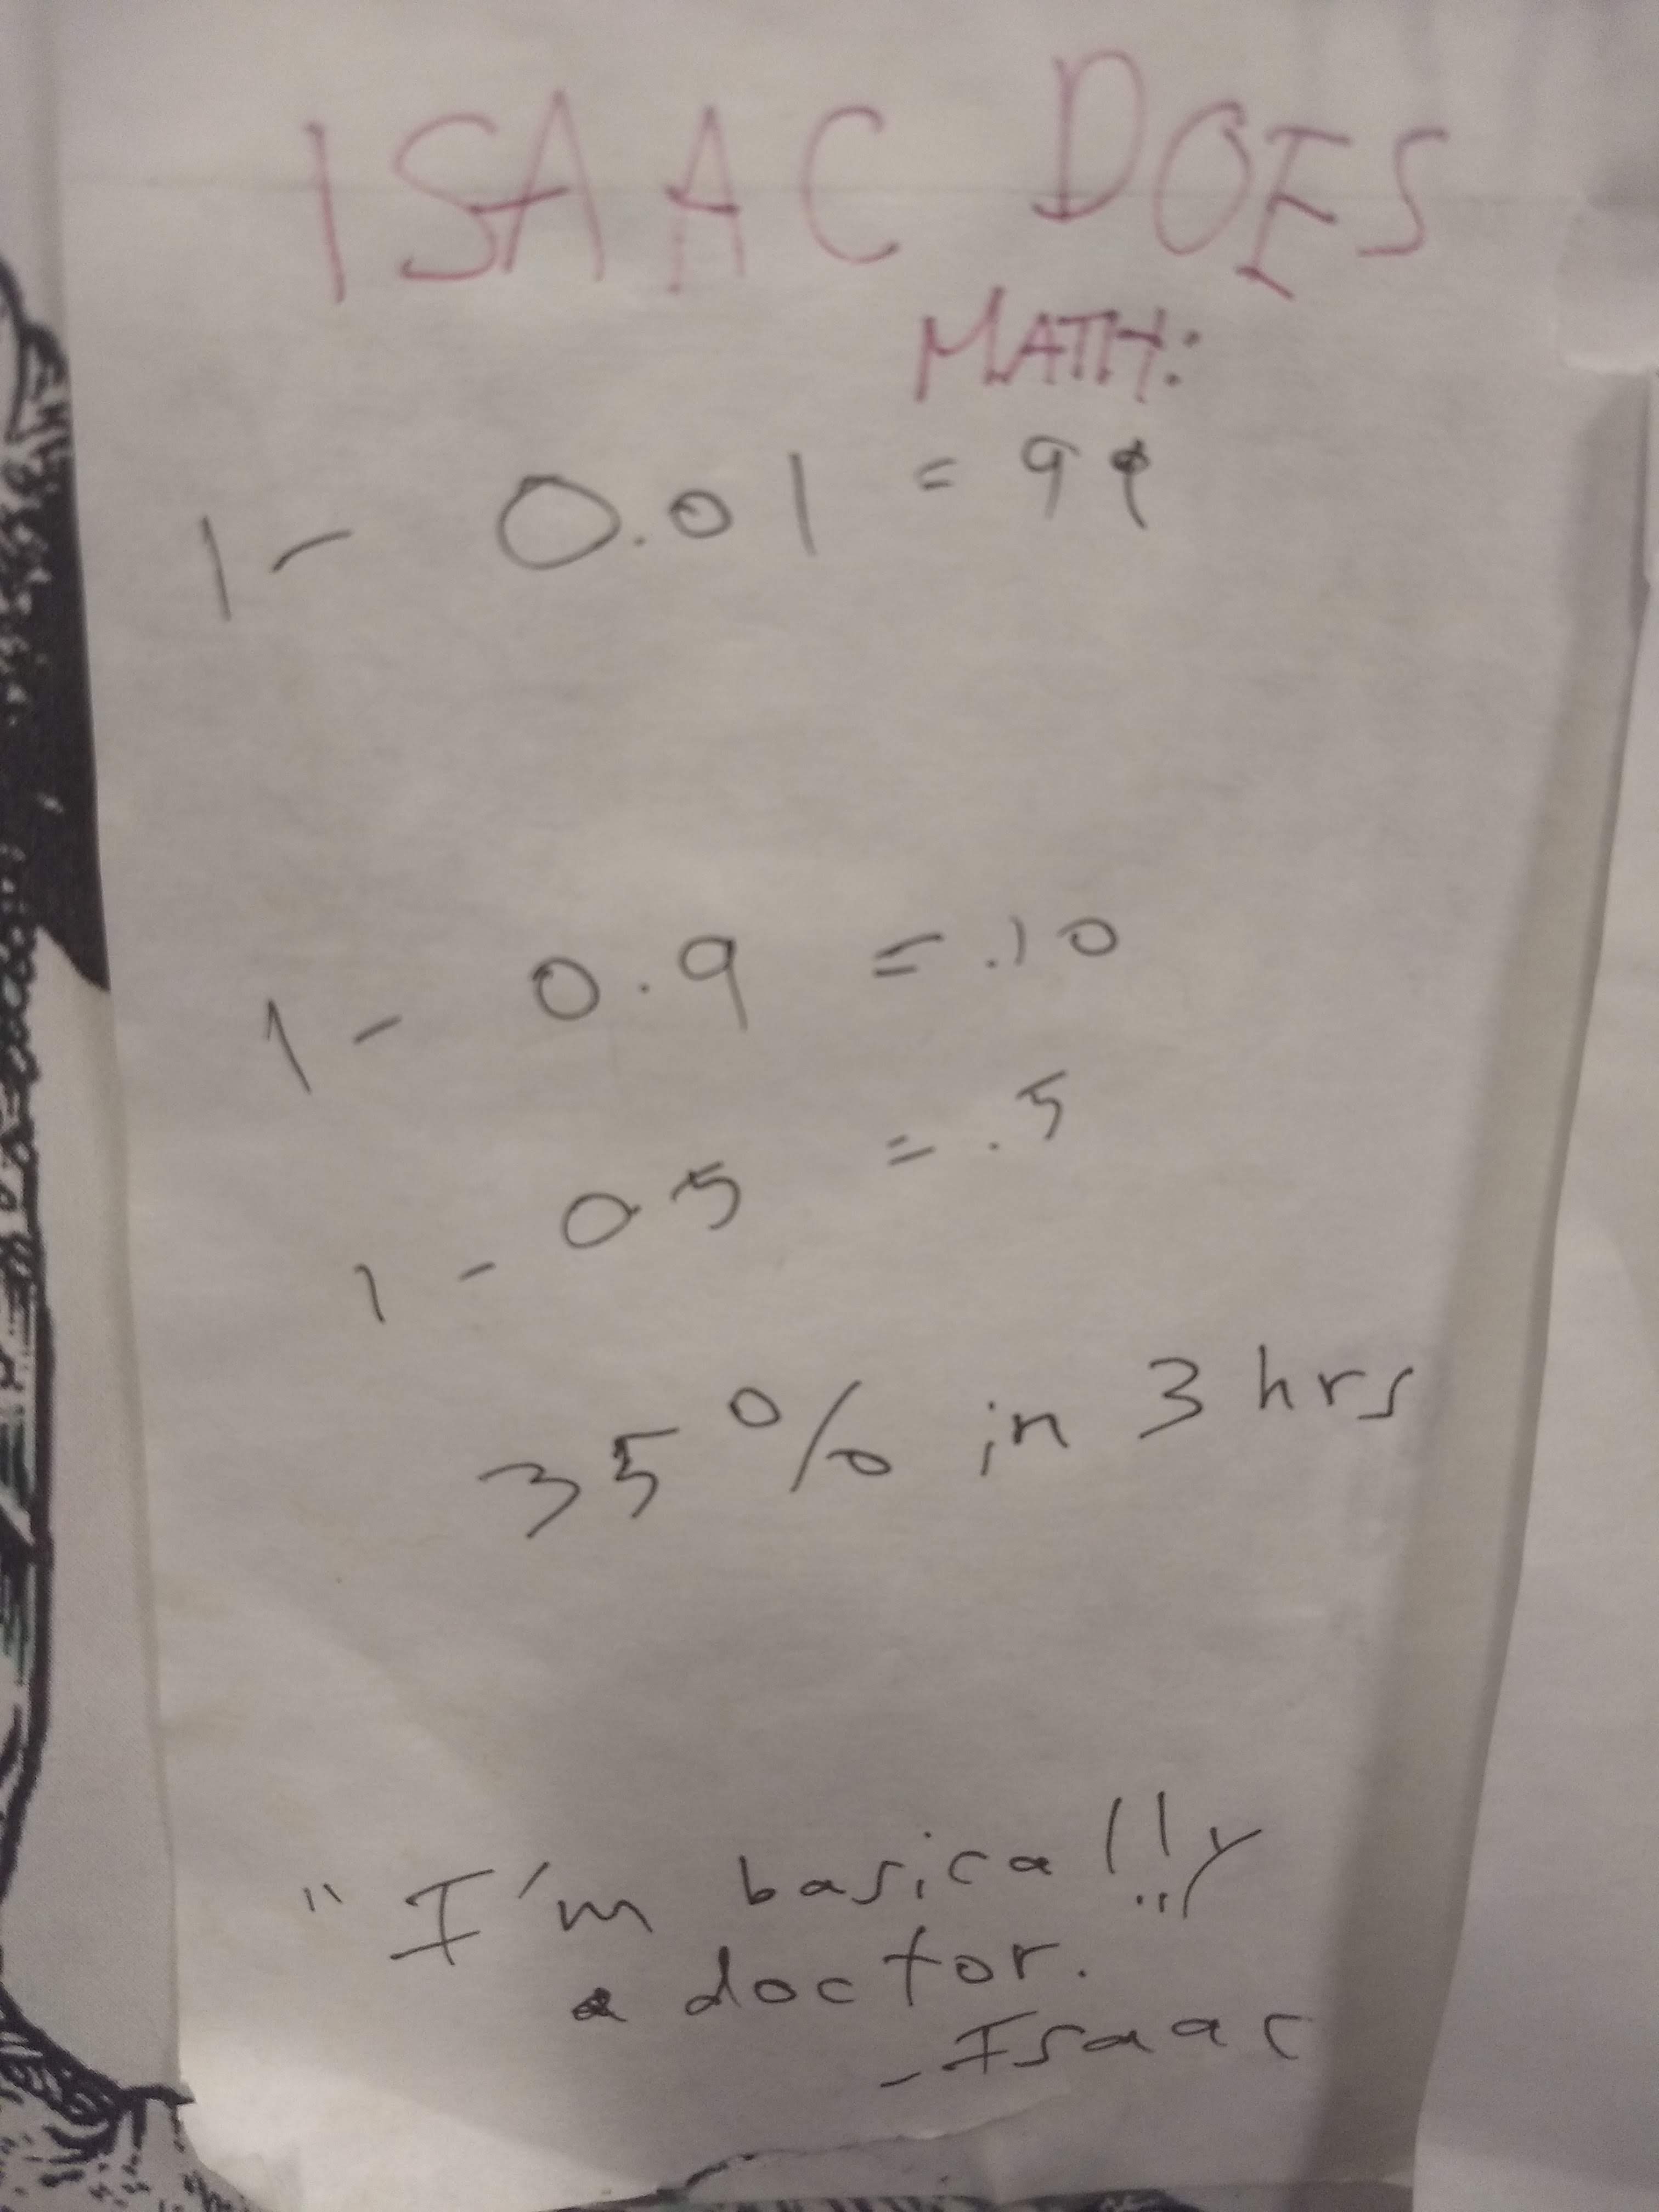 ISAAC DOES
MATH:
1 - 0.01 = 99
1 - 0.9 = .10
1 - 0.5 = .5
35% in 3 hrs
"I'm basically
a doctor."
- Isaac